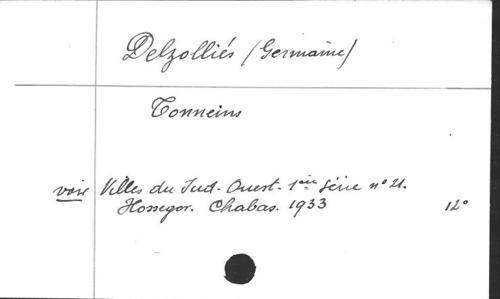 Delzolliés (Germaine)
Tonneins
voir Villes du Sud-Ouest. 1ère série n° 21.
Hossegor. Chabas. 1933 12°